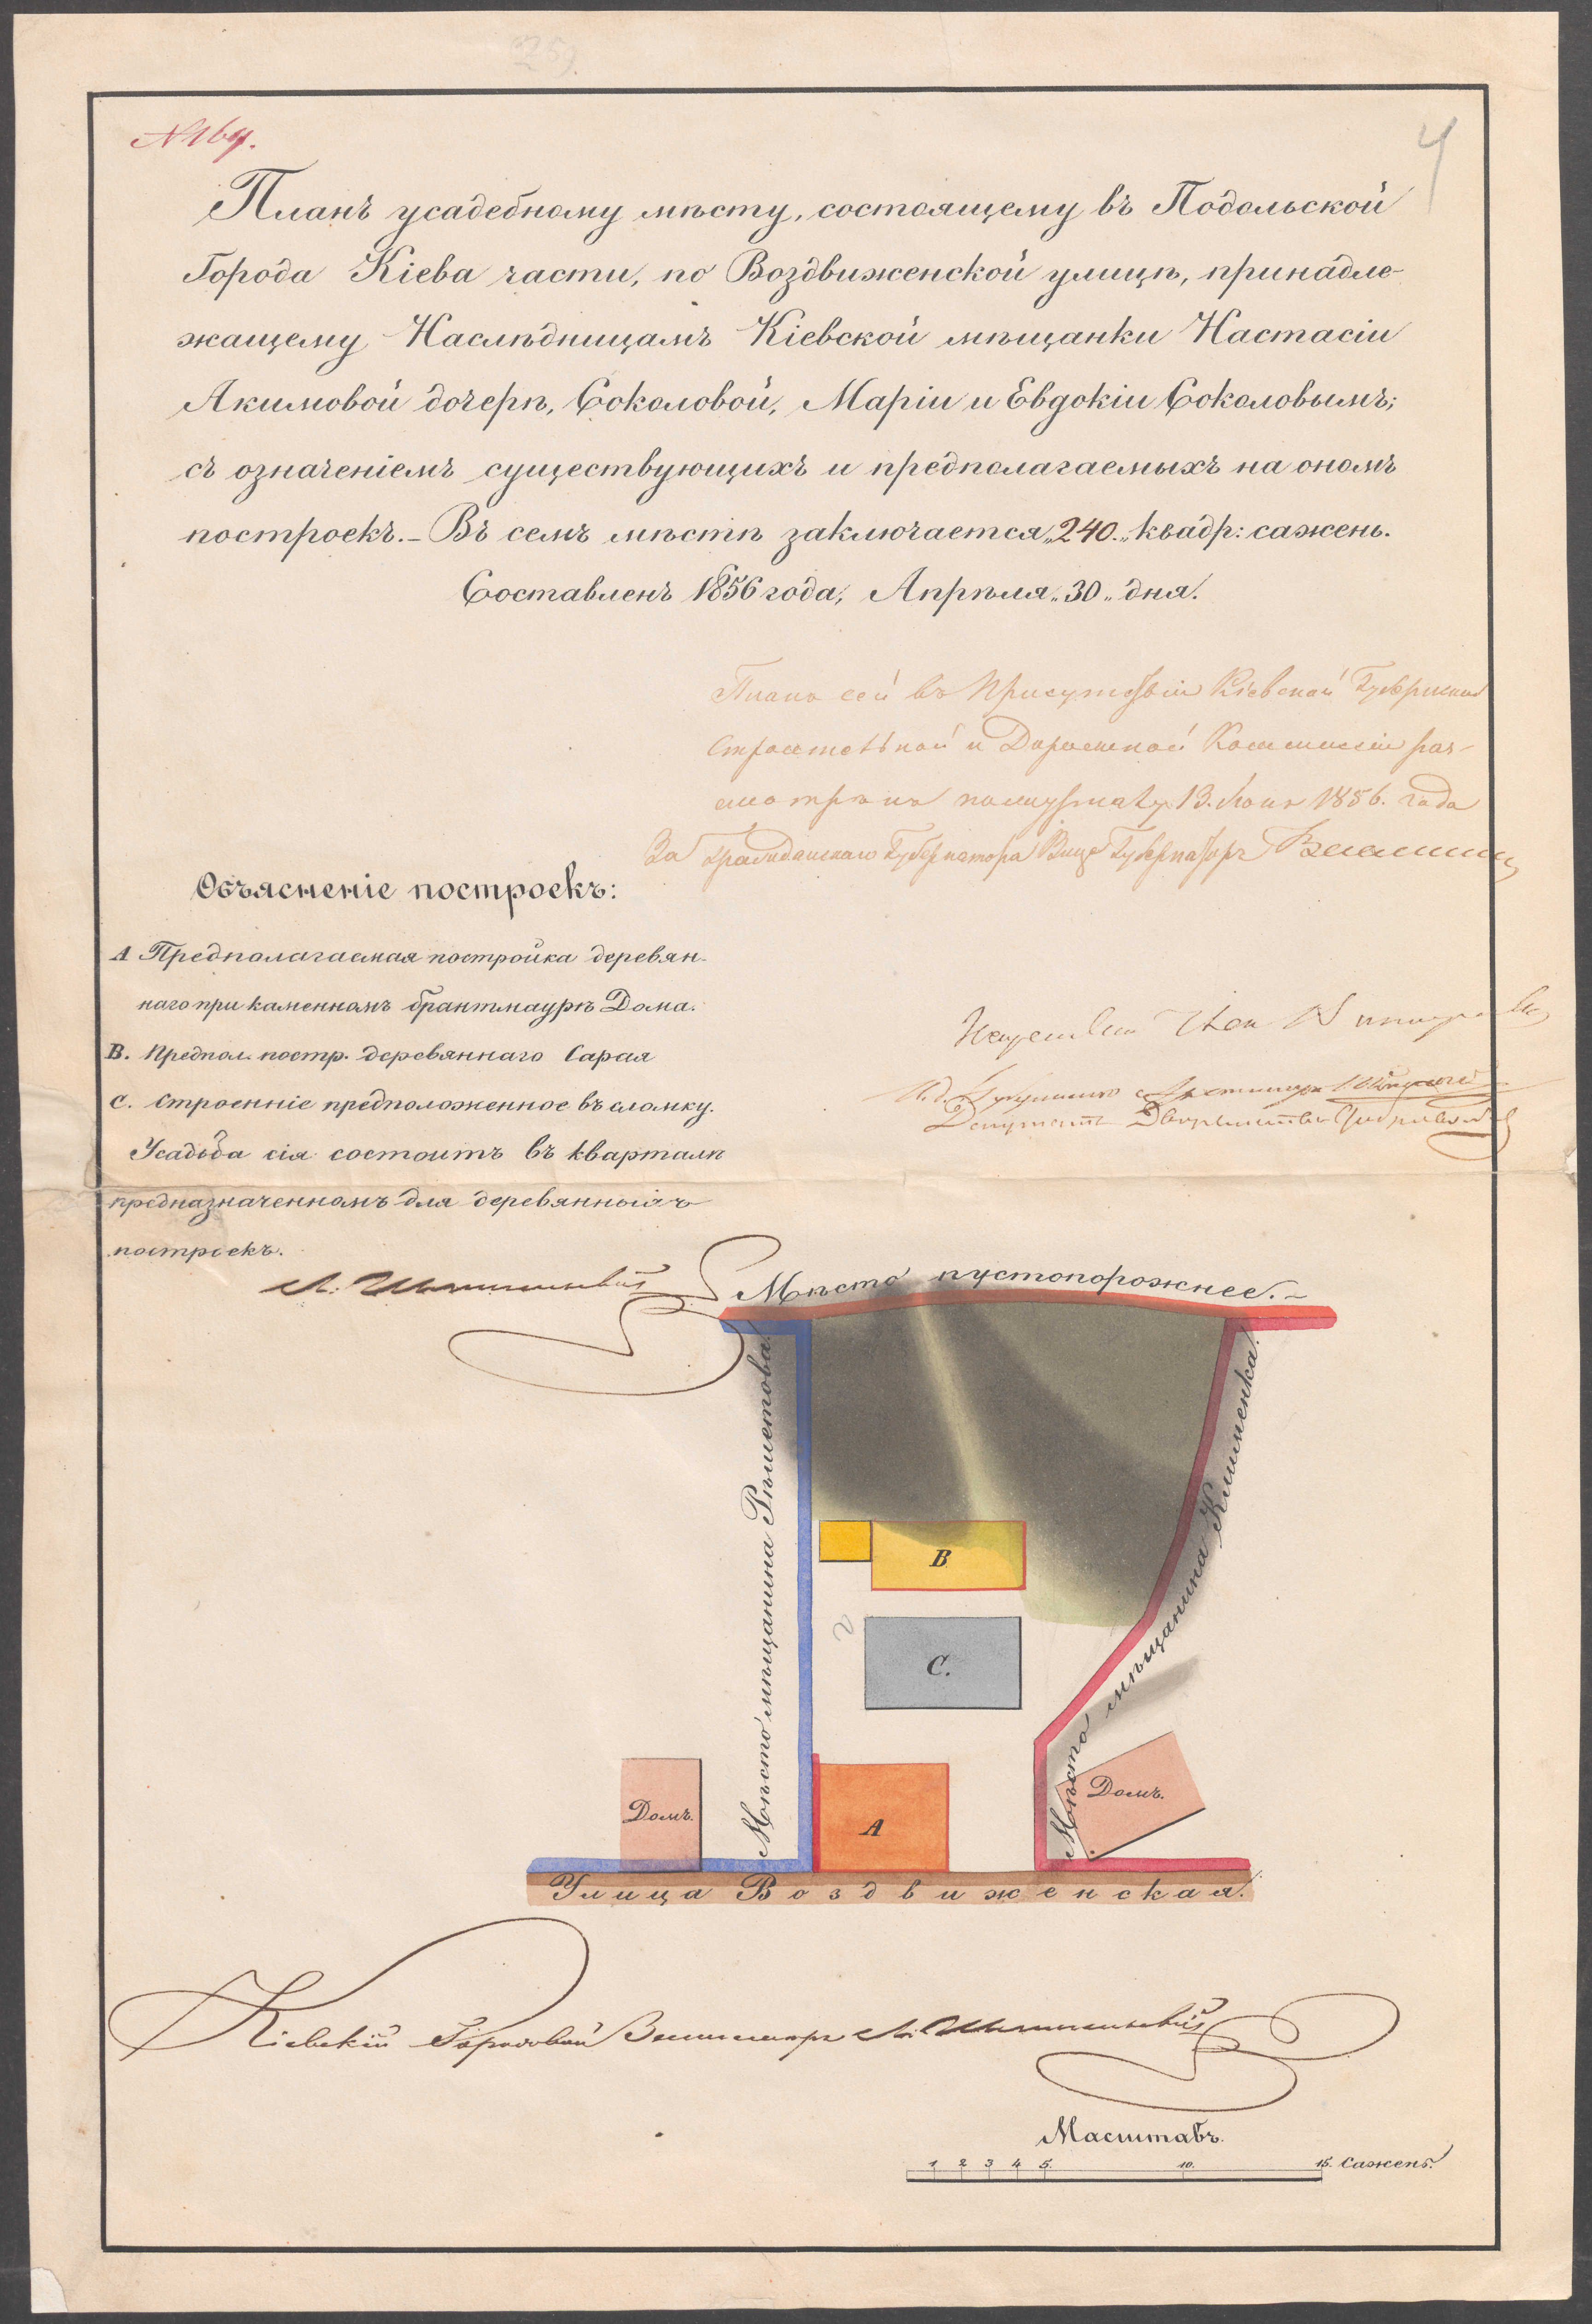 № 164.
4
Планъ усадебному мѣсту, состоящему въ Подольской
Города Кіева части, по Воздвиженской улицѣ, принадле-
жащему Наслѣдницамъ Кіевской мѣщанки Настасіи
Акимовой дочерѣ, Соколовой, Маріи и Евдокіи Соколовымъ;
съ означеніемъ существующихъ и предполагаемыхъ на ономъ
построекъ.- Въ семъ мѣстѣ заключается „240.„ квадр: сажень.
Составленъ 1856 года, Апрѣля „30„ дня.
Планъ сей въ Присутствіи Кіевской Губернской
Строительной и Дорожной Коммиссіи раз-
смотрѣнъ по журналу 13. Іюня 1856. года
За Гражданскаго Губернатора Вице Губернаторъ
Объясненіе построекъ:
А Предполагаемая постройка деревян-
наго при каменномъ брантмаурѣ Дома.
В. Предпол. постр. деревяннаго Сарая
С. Строенніе предположенное въ сломку.
Усадьба сія состоитъ въ кварталѣ
предназначенномъ для деревянныхъ
построекъ.
Депутатъ Дворянства
Мѣсто пустопорожнее.-
Мѣсто мѣщанина Рѣшетова.
Мѣсто мѣщанина Клименка.
В
С.
А
Домъ.
Домъ.
Улица Воздвиженская.
Кіевскій Городовой
Масштабъ.
1 2 3 4 5. 10. 15. Сажень.